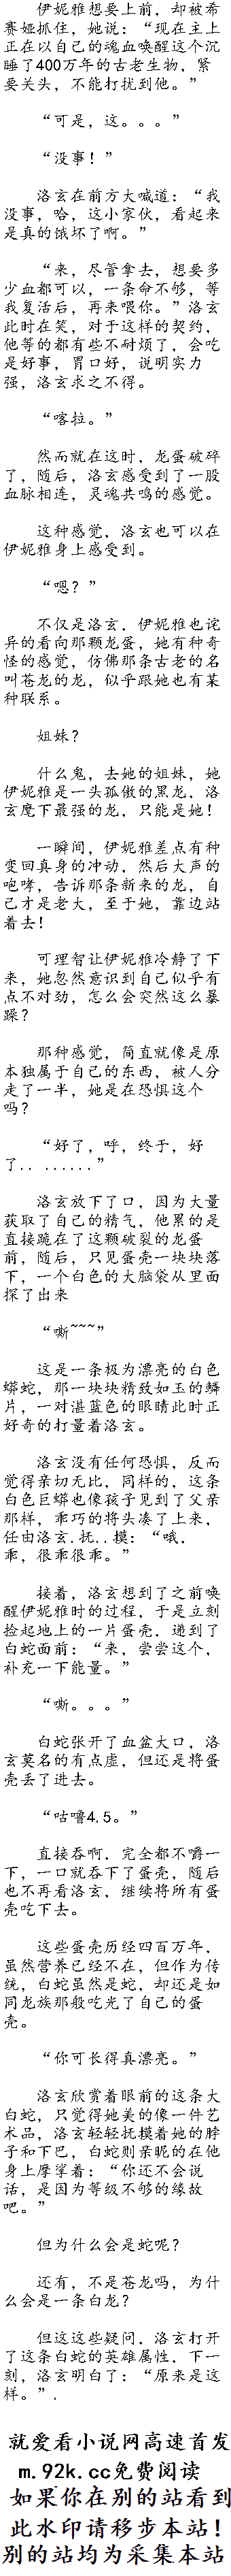 伊妮雅想要上前，却被希
赛娅抓住，她说：“现在主上
正在以自己的魂血唤醒这个沉
睡了400万年的古老生物，紧
要关头，不能打扰到他。”
“可是，这。。。”
“没事！”
洛玄在前方大喊道：“我
没事，哈，这小家伙，看起来
是真的饿坏了啊。”
“来，尽管拿去，想要多
少血都可以，一条命不够，等
我复活后，再来喂你。”洛玄
此时在笑，对于这样的契约，
他等的都有些不耐烦了，会吃
是好事，胃口好，说明实力
强，洛玄求之不得。
“喀拉。”
然而就在这时，龙蛋破碎
了，随后，洛玄感受到了一股
血脉相连，灵魂共鸣的感觉。
这种感觉，洛玄也可以在
伊妮雅身上感受到。
“嗯？”
不仅是洛玄，伊妮雅也诧
异的看向那颗龙蛋，她有种奇
怪的感觉，仿佛那条古老的名
叫苍龙的龙，似乎跟她也有某
种联系。
姐妹？
什么鬼，去她的姐妹，她
伊妮雅是一头孤傲的黑龙，洛
玄麾下最强的龙，只能是她！
一瞬间，伊妮雅差点有种
变回真身的冲动，然后大声的
咆哮，告诉那条新来的龙，自
己才是老大，至于她，靠边站
着去！
可理智让伊妮雅冷静了下
来，她忽然意识到自己似乎有
点不对劲，怎么会突然这么暴
躁？
那种感觉，简直就像是原
本独属于自己的东西，被人分
走了一半，她是在恐惧这个
吗？
“好了，呼，终于，好
了.. ......”
洛玄放下了口，因为大量
获取了自己的精气，他累的是
直接跪在了这颗破裂的龙蛋
前，随后，只见蛋壳一块块落
下，一个白色的大脑袋从里面
探了出来
“嘶~~~”
这是一条极为漂亮的白色
蟒蛇，那一块块精致如玉的鳞
片，一对湛蓝色的眼睛此时正
好奇的打量着洛玄。
洛玄没有任何恐惧，反而
觉得亲切无比，同样的，这条
白色巨蟒也像孩子见到了父亲
那样，乖巧的将头凑了上来，
任由洛玄.抚..摸：“哦，
乖，很乖很乖。”
接着，洛玄想到了之前唤
醒伊妮雅时的过程，于是立刻
捡起地上的一片蛋壳，递到了
白蛇面前：“来，尝尝这个，
补充一下能量。”
“嘶。。。”
白蛇张开了血盆大口，洛
玄莫名的有点虚，但还是将蛋
壳丢了进去。
“咕噜4.5。”
直接吞啊，完全都不嚼一
下，一口就吞下了蛋壳，随后
也不再看洛玄，继续将所有蛋
壳吃下去。
这些蛋壳历经四百万年，
虽然营养已经不在，但作为传
统，白蛇虽然是蛇，却还是如
同龙族那般吃光了自己的蛋
壳。
“你可长得真漂亮。”
洛玄欣赏着眼前的这条大
白蛇，只觉得她美的像一件艺
术品，洛玄轻轻抚摸着她的脖
子和下巴，白蛇则亲昵的在他
身上摩挲着：“你还不会说
话，是因为等级不够的缘故
吧。”
但为什么会是蛇呢？
还有，不是苍龙吗，为什
么会是一条白龙？
但这这些疑问，洛玄打开
了这条白蛇的英雄属性，下一
刻，洛玄明白了：“原来是这
样。”.
就爱看小说网高速首发
m.92k.cc免费阅读
如果你在别的站看到
此水印请移步本站！
别的站均为采集本站